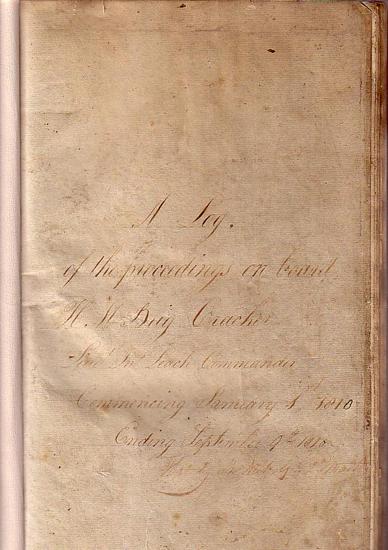 A Log.
of the proceedings on board
H. M. Brig Cracker
Leach Commander
Commencing January 1st 1810
Ending September 9th 1810